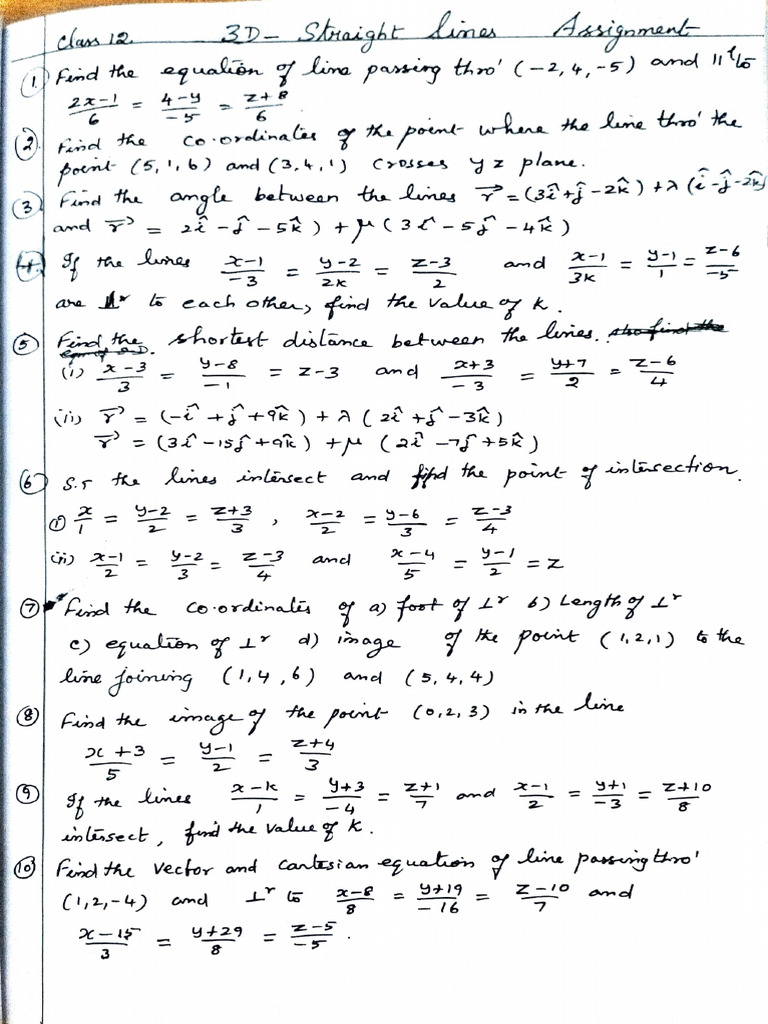 Class 12. 3D - Straight lines Assignment
① Find the equation of line passing thro' (-2, 4, -5) and ||el to
(2x-1)/6 = (4-y)/-5 = (z+8)/6
② Find the co.ordinates of the point where the line thro' the
point (5, 1, 6) and (3, 4, 1) crosses yz plane.
③ Find the angle between the lines r⃗ = (3î+ĵ-2k̂) + λ (î-ĵ-2k̂)
and r⃗ = 2î - ĵ - 5k̂) + μ (3î - 5ĵ - 4k̂)
④ If the lines (x-1)/-3 = (y-2)/2k = (z-3)/2 and (x-1)/3k = (y-1)/1 = (z-6)/-5
are ⊥r to each other, find the value of k.
⑤ Find the shortest distance between the lines. also find the
(i) (x-3)/3 = (y-8)/-1 = z-3 and (x+3)/-3 = (y+7)/2 = (z-6)/4
(ii) r⃗ = (-î + ĵ + 9k̂) + λ (2î + ĵ - 3k̂)
r⃗ = (3î - 15ĵ + 9k̂) + μ (2î - 7ĵ + 5k̂)
⑥ S.T the lines intersect and find the point of intersection.
(i) x/1 = (y-2)/2 = (z+3)/3 , (x-2)/2 = (y-6)/3 = (z-3)/4
(ii) (x-1)/2 = (y-2)/3 = (z-3)/4 and (x-4)/5 = (y-1)/2 = z
⑦ Find the co.ordinates of a) foot of ⊥r b) Length of ⊥r
c) equation of ⊥r d) image of the point (1, 2, 1) to the
line joining (1, 4, 6) and (5, 4, 4)
⑧ Find the image of the point (0, 2, 3) in the line
(x+3)/5 = (y-1)/2 = (z+4)/3
⑨ If the lines (x-k)/1 = (y+3)/-4 = (z+1)/7 and (x-1)/2 = (y+1)/-3 = (z+10)/8
intersect, find the value of k.
⑩ Find the vector and cartesian equation of line passing thro'
(1, 2, -4) and ⊥r to (x-8)/8 = (y+19)/-16 = (z-10)/7 and
(x-15)/3 = (y+29)/8 = (z-5)/-5 .